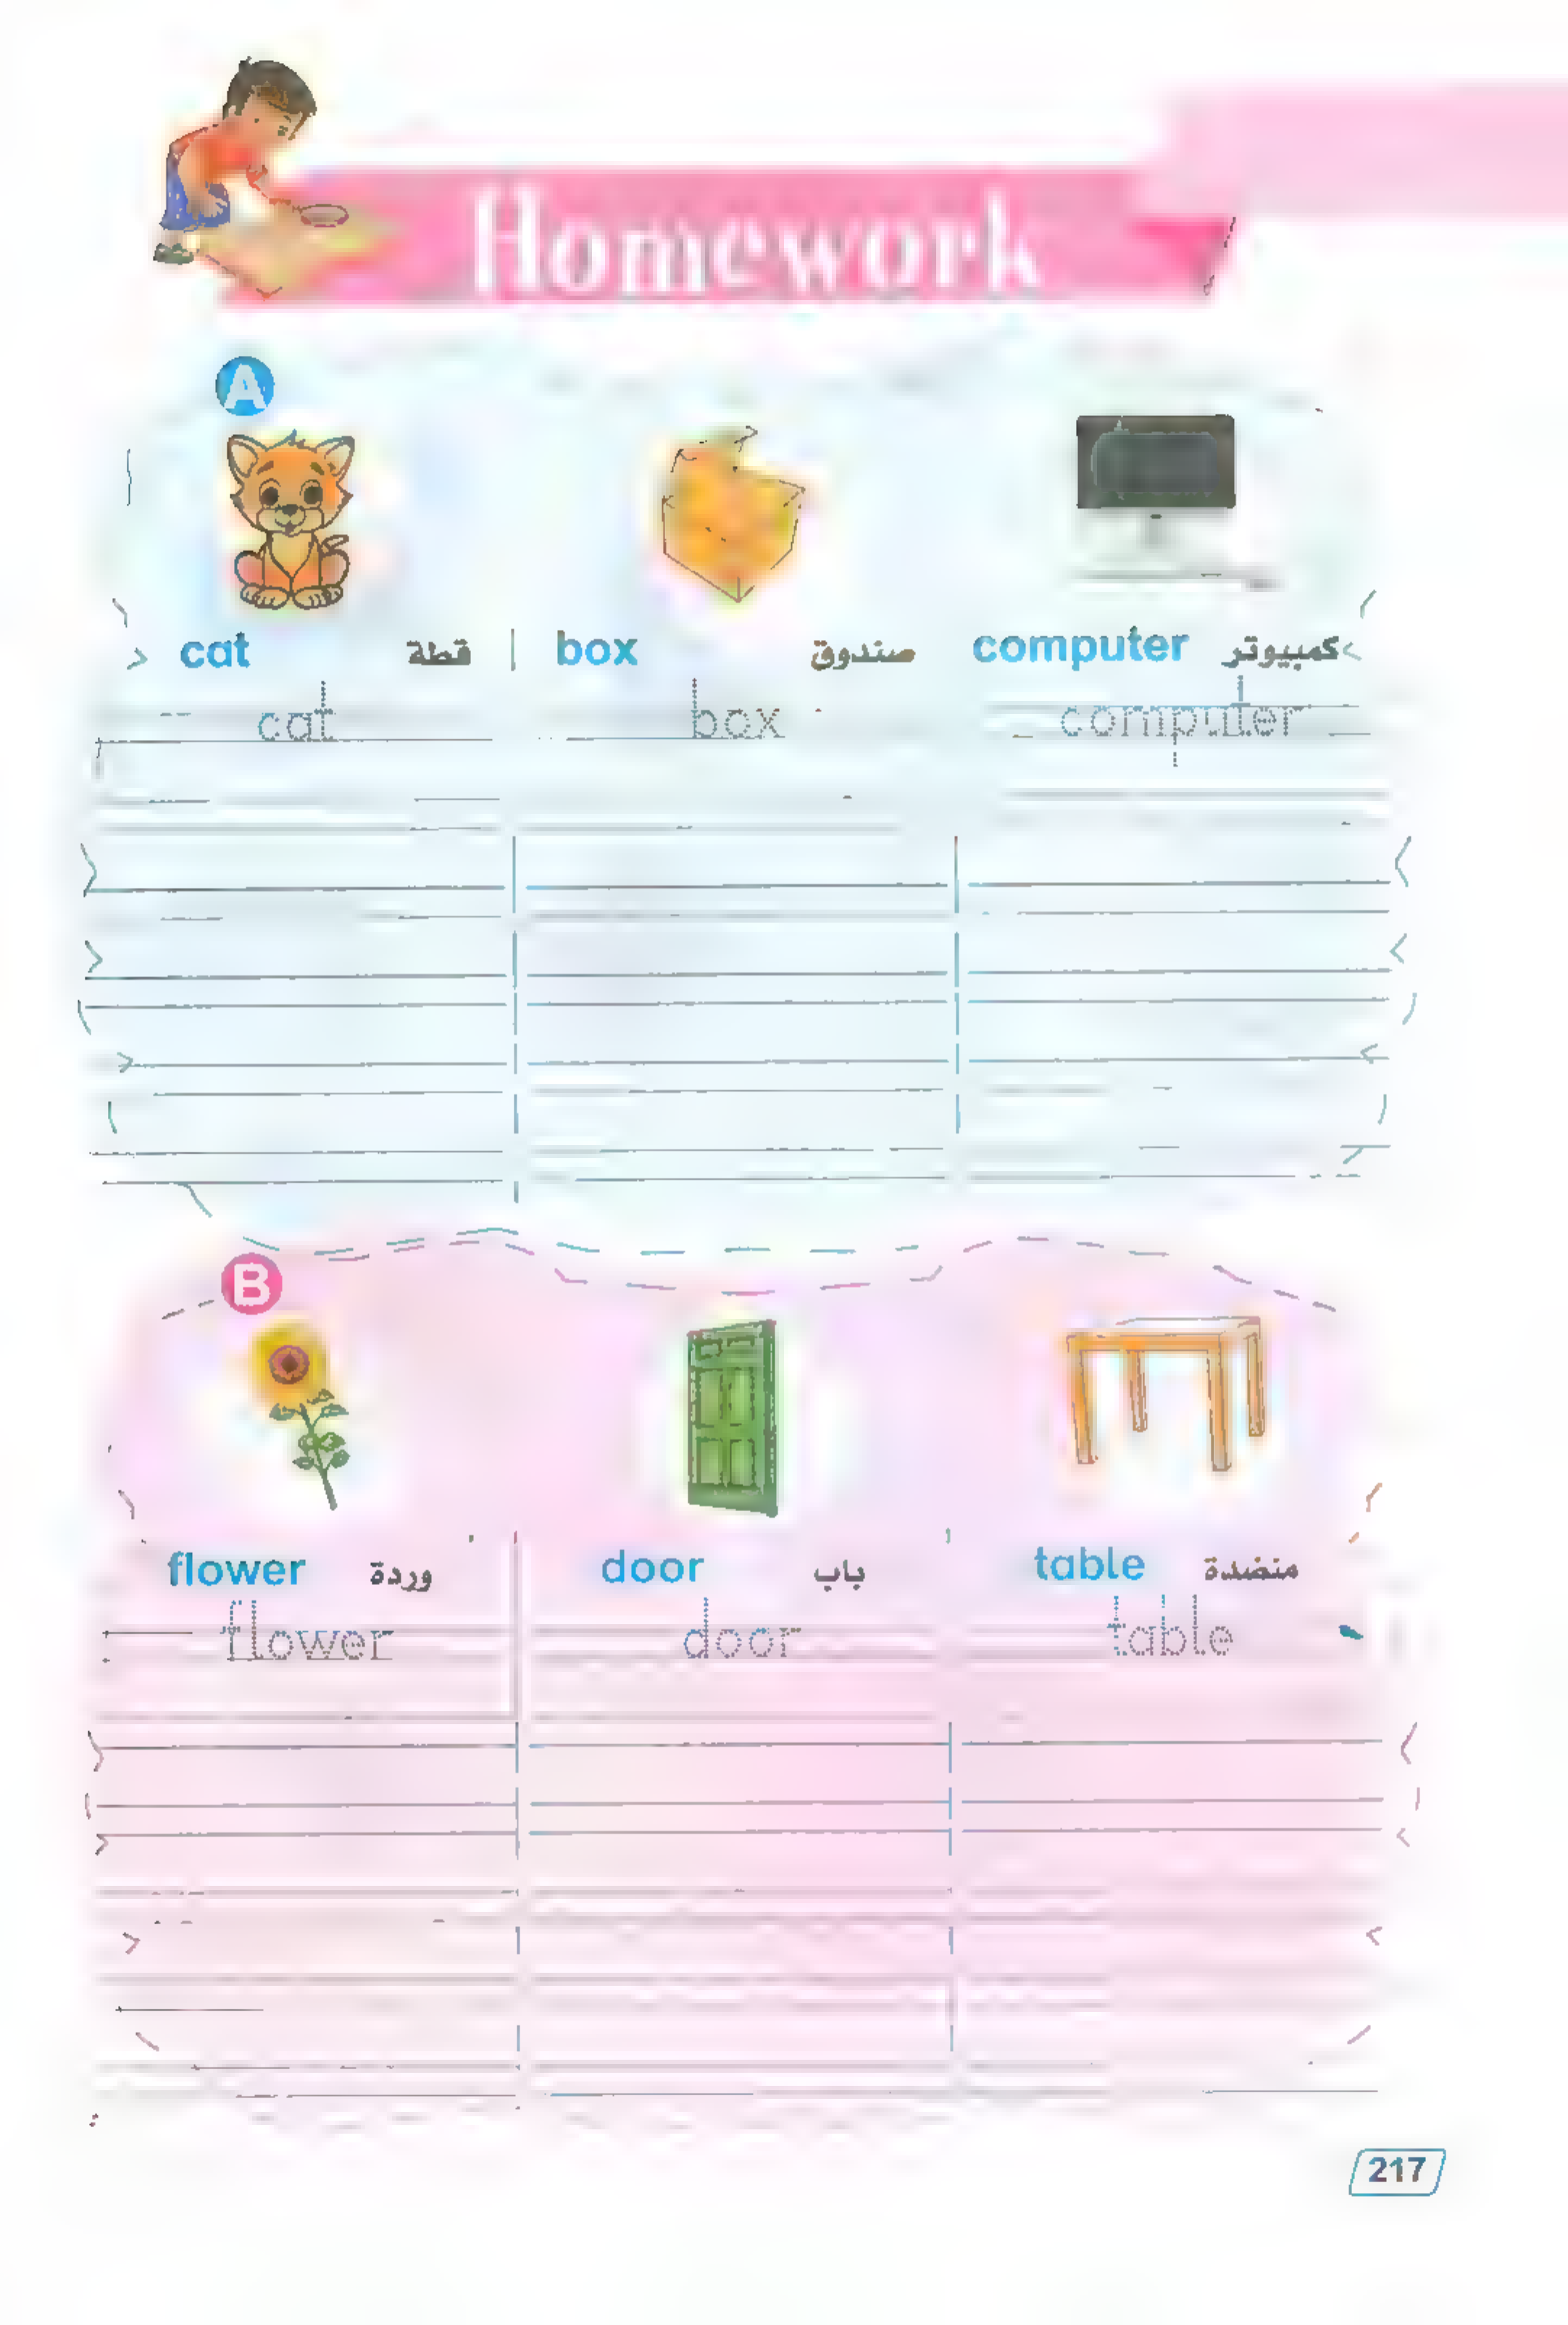 Homework
A
cat قطة box صندوق computer كمبيوتر
cat box computer
B
flower وردة door باب table منضدة
flower door table
217